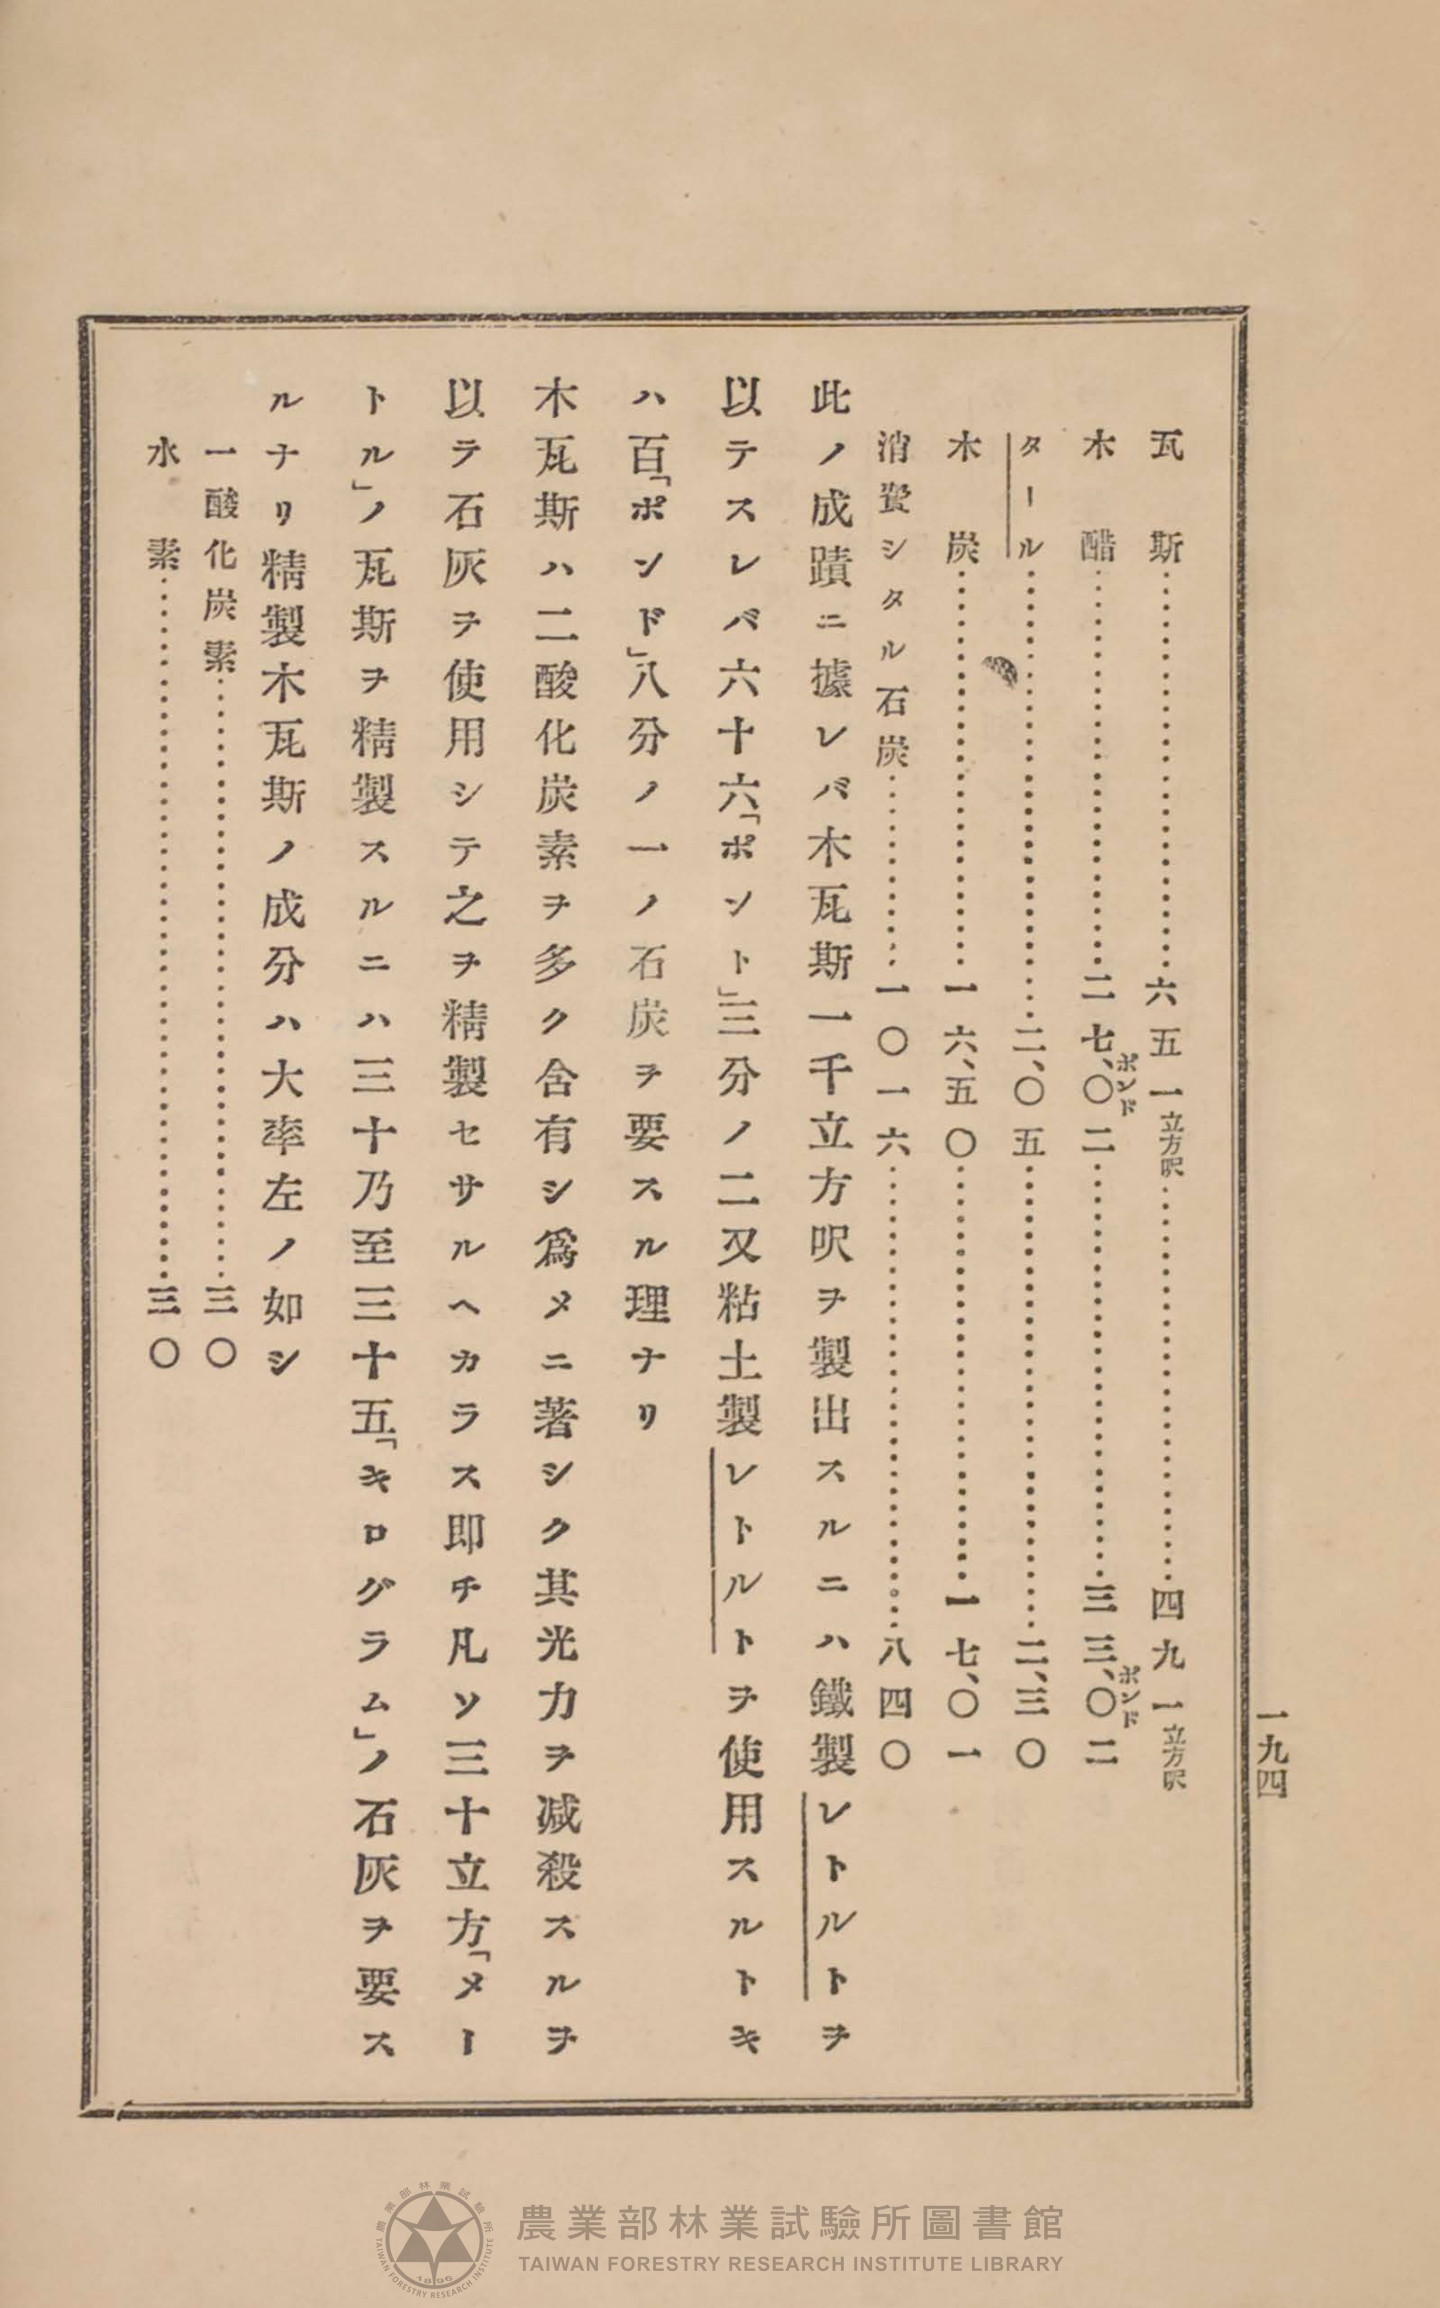 一九四
瓦斯……六五一立方呎……四九一立方呎
木醋……二七、〇二ポンド……三三、〇二ポンド
タール……二、〇五……二、三〇
木炭……一六、五〇……一七、〇一
消費シタル石炭……一〇一六……八四〇
此ノ成蹟ニ據レバ木瓦斯一千立方呎ヲ製出スルニハ鐵製レトルトヲ
以テスレバ六十六「ポント」三分ノ二又粘土製レトルトヲ使用スルトキ
ハ百「ポンド」八分ノ一ノ石炭ヲ要スル理ナリ
木瓦斯ハ二酸化炭素ヲ多ク含有シ爲メニ著シク其光力ヲ减殺スルヲ
以テ石灰ヲ使用シテ之ヲ精製セサルヘカラス即チ凡ソ三十立方「メー
トル」ノ瓦斯ヲ精製スルニハ三十乃至三十五「キログラム」ノ石灰ヲ要ス
ルナリ精製木瓦斯ノ成分ハ大率左ノ如シ
一酸化炭素……三〇
水素……三〇
農業部林業試驗所圖書館
TAIWAN FORESTRY RESEARCH INSTITUTE LIBRARY
農業部林業試驗所
TAIWAN FORESTRY RESEARCH INSTITUTE
1896